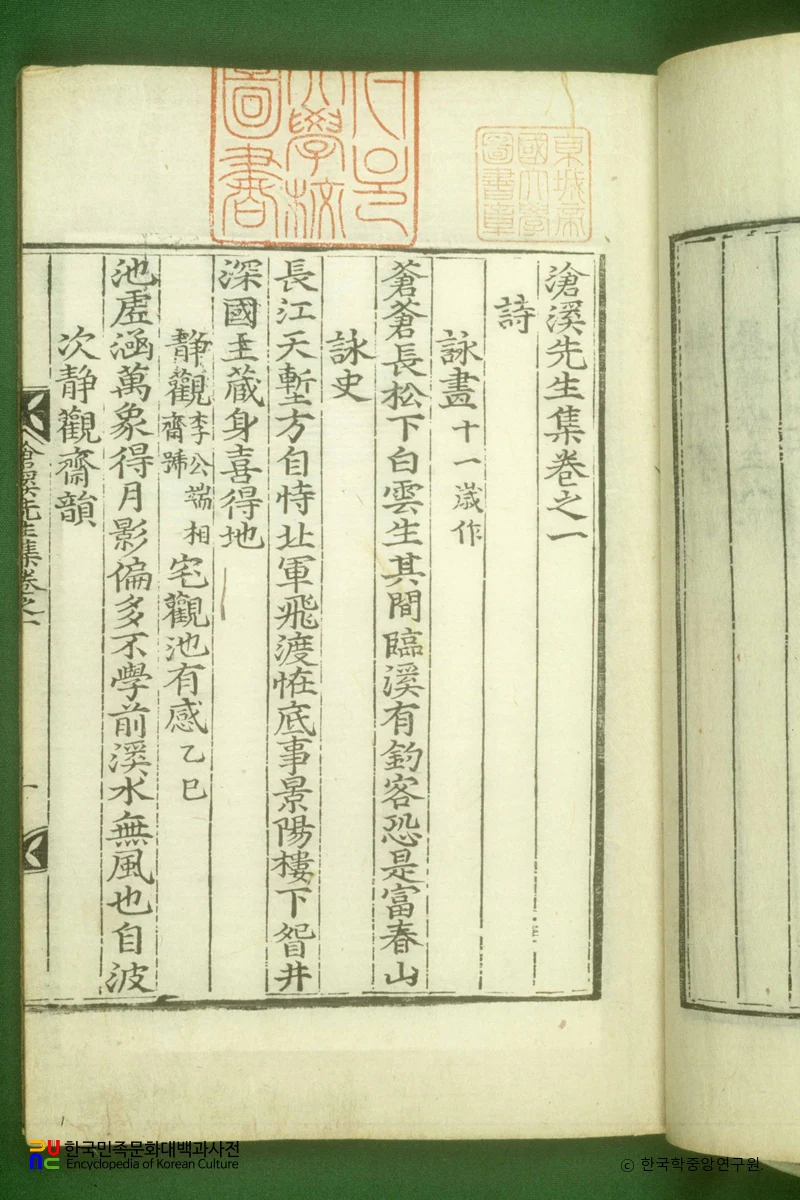 滄溪先生集卷之一
詩
詠畫 十一歲作
蒼蒼長松下白雲生其間臨溪有釣客恐是富春山
詠史
長江天塹方自恃北軍飛渡恠底事景陽樓下眢井
深國主蔵身喜得地
静觀齋李公端相號宅觀池有感 乙巳
池虛涵萬象得月影偏多不學前溪水無風也自波
次静觀齋韻
滄溪先生集卷之一
一
東城帝
國大學
圖書章
學校
圖書
한국민족문화대백과사전
Encyclopedia of Korean Culture
© 한국학중앙연구원